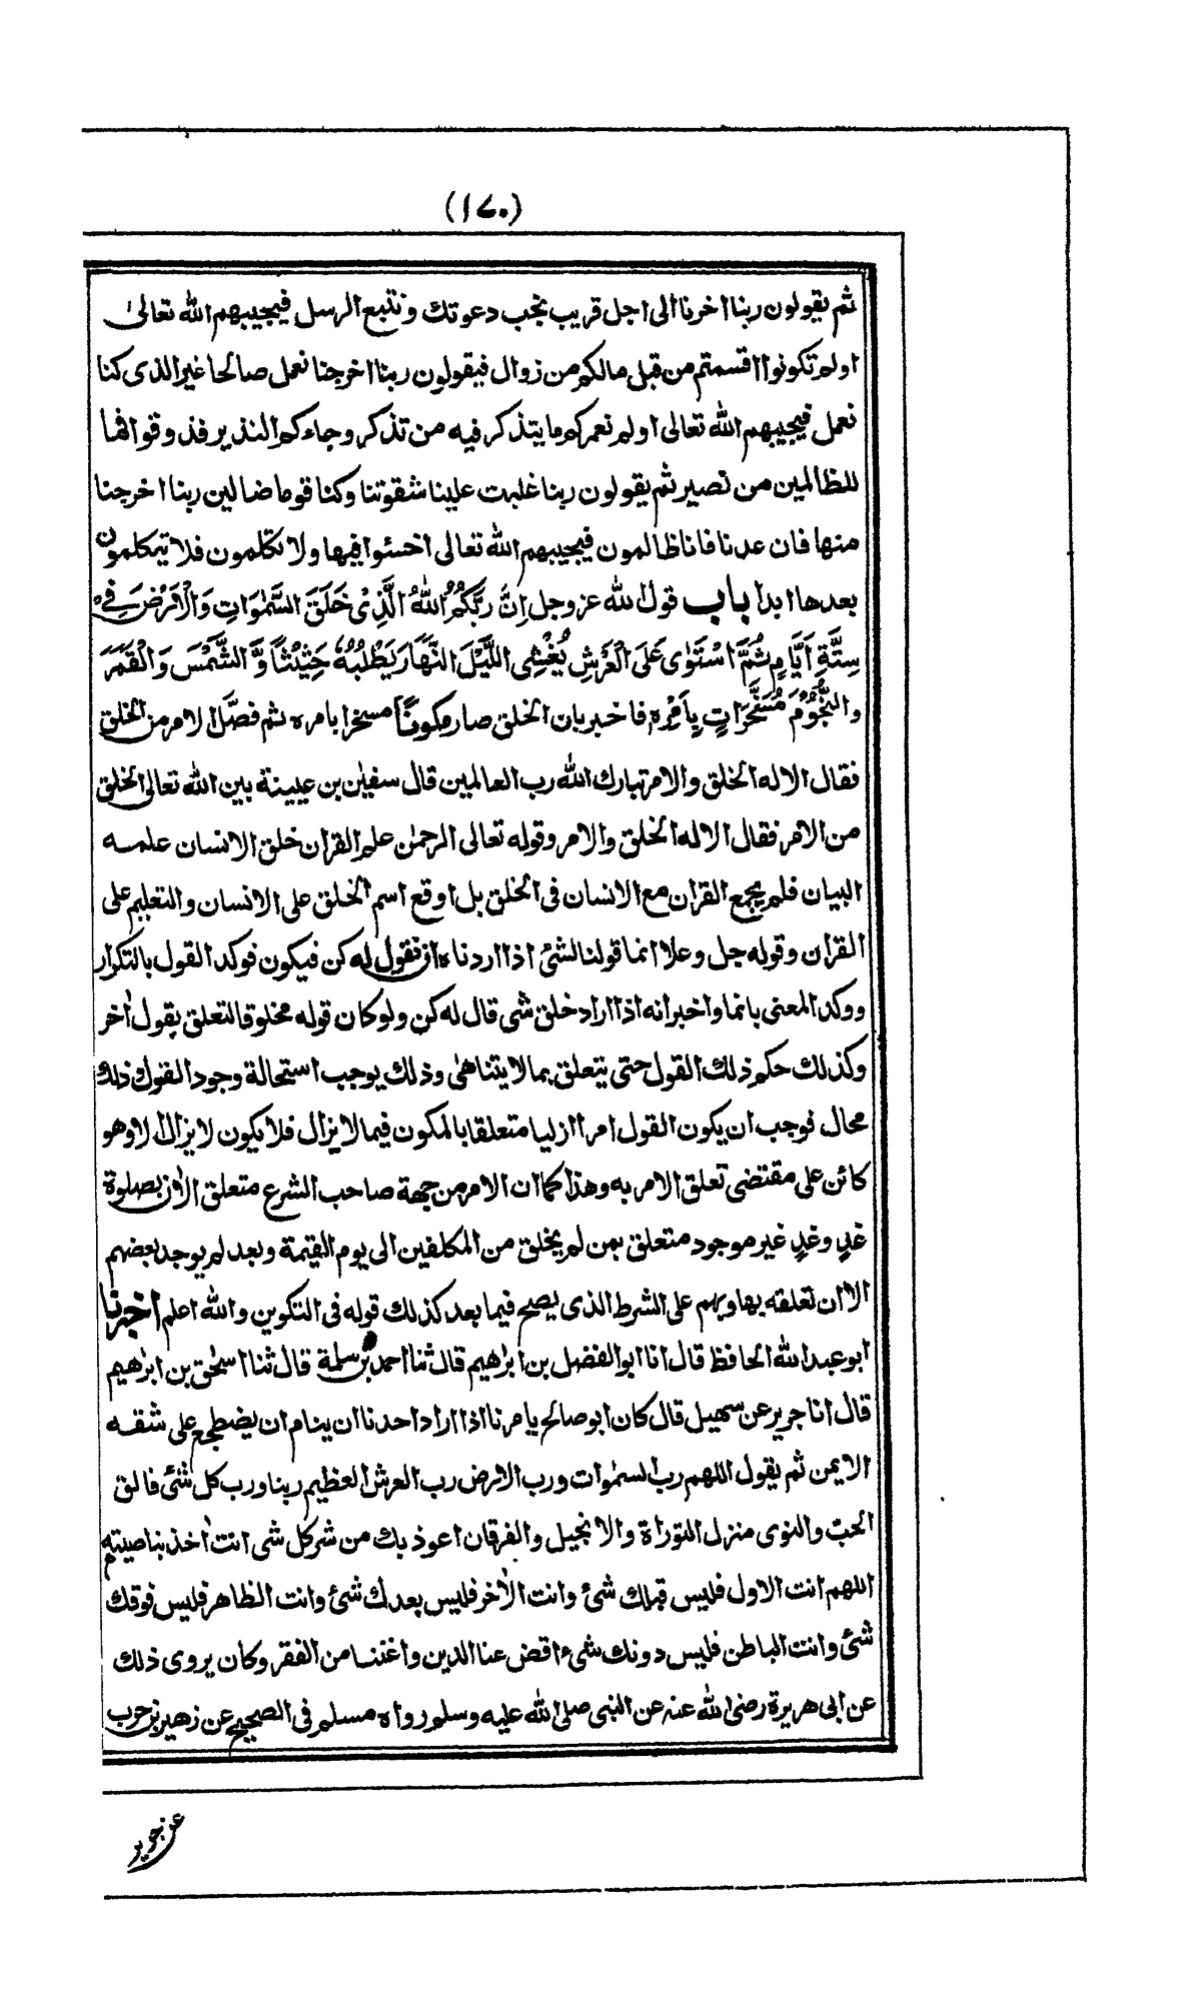 (١٧٠)
ثم يقولون ربنا اخرنا الى اجل قريب نجب دعوتك ونتبع الرسل فيجيبهم الله تعالىٰ
اولم تكونوا اقسمتم من قبل مالكم من زوال فيقولون ربنا اخرجنا نعمل صالحا غير الذى كنا
نعمل فيجيبهم الله تعالى اولم نعمركم ما يتذكر فيه من تذكر وجاءكم النذير فذوقوا فما
للظالمين من نصير ثم يقولون ربنا غلبت علينا شقوتنا وكنا قوما ضالين ربنا اخرجنا
منها فان عدنا فانا ظالمون فيجيبهم الله تعالى اخسئوا فيها ولا تكلمون فلا يتكلمون
بعدها ابدا باب قول الله عز وجل اِنَّ رَبَّكُمُ اللّٰهُ الَّذِىْ خَلَقَ السَّمٰوَاتِ وَالْاَرْضَ فِىْ
سِتَّةِ اَيَّامٍ ثُمَّ اسْتَوٰى عَلَى الْعَرْشِ يُغْشِى اللَّيْلَ النَّهَارَ يَطْلُبُهٗ حَثِيْثًا وَّ الشَّمْسَ وَالْقَمَرَ
والنُّجُوْمَ مُسَخَّرَاتٍ بِاَمْرِهٖ فاخبر بان الخلق صار مكونًا مسخرا بامره ثم فصّل الامر من الخلق
فقال الا له الخلق والامر تبارك الله رب العالمين قال سفيٰن بن عيينة بين الله تعالى الخلق
من الامر فقال الا له الخلق والامر وقوله تعالى الرحمٰن علم القراٰن خلق الانسان علمه
البيان فلم يجمع القراٰن مع الانسان فى الخلق بل اوقع اسم الخلق على الانسان والتعليم على
القراٰن وقوله جل وعلا انما قولنا لشئ اذا اردناه ان نقول له كن فيكون فوكد القول بالتكرار
ووكد المعنى بانما واخبر انه اذا اراد خلق شى قال له كن ولو كان قوله مخلوقا لتعلق بقول اٰخر
وكذلك حكم ذلك القول حتى يتعلق بما لا يتناهٰى وذلك يوجب استحالة وجود القول ذلك
محال فوجب ان يكون القول امرا ازليا متعلقا بالمكون فيما لا يزال فلا يكون لا يزال الا وهو
كائن على مقتضى تعلق الامر به وهذا كما ان الامر من جهة صاحب الشرع متعلق الاٰن بصلوة
غدٍ وغدٍ غير موجود متعلق بمن لم يخلق من المكلفين الى يوم القيٰمة وبعد لم يوجد بعضهم
الا ان تعلقه بها وبهم على الشرط الذى يصح فيما بعد كذلك قوله فى التكوين والله اعلم اخبرنا
ابو عبد الله الحافظ قال انا ابو الفضل بن ابرٰهيم قال ثنا احمد بن سلمة قال ثنا اسحٰق بن ابرٰهيم
قال انا جرير عن سهيل قال كان ابو صالح يامرنا اذا اراد احدنا ان ينام ان يضطجع على شقه
الايمن ثم يقول اللهم رب السمٰوات ورب الارض رب العرش العظيم ربنا ورب كل شئ فالق
الحبّ والنوى منزل التوراة والانجيل والفرقان اعوذ بك من شر كل شى انت اٰخذ بناصيته
اللهم انت الاول فليس قبلك شئ وانت الاٰخر فليس بعدك شئ وانت الظاهر فليس فوقك
شئ وانت الباطن فليس دونك شئ اقض عنا الدين واغننا من الفقر وكان يروى ذلك
عن ابى هريرة رضى الله عنه عن النبى صلى الله عليه وسلم رواه مسلم فى الصحيح عن زهير بن حرب
عن جرير